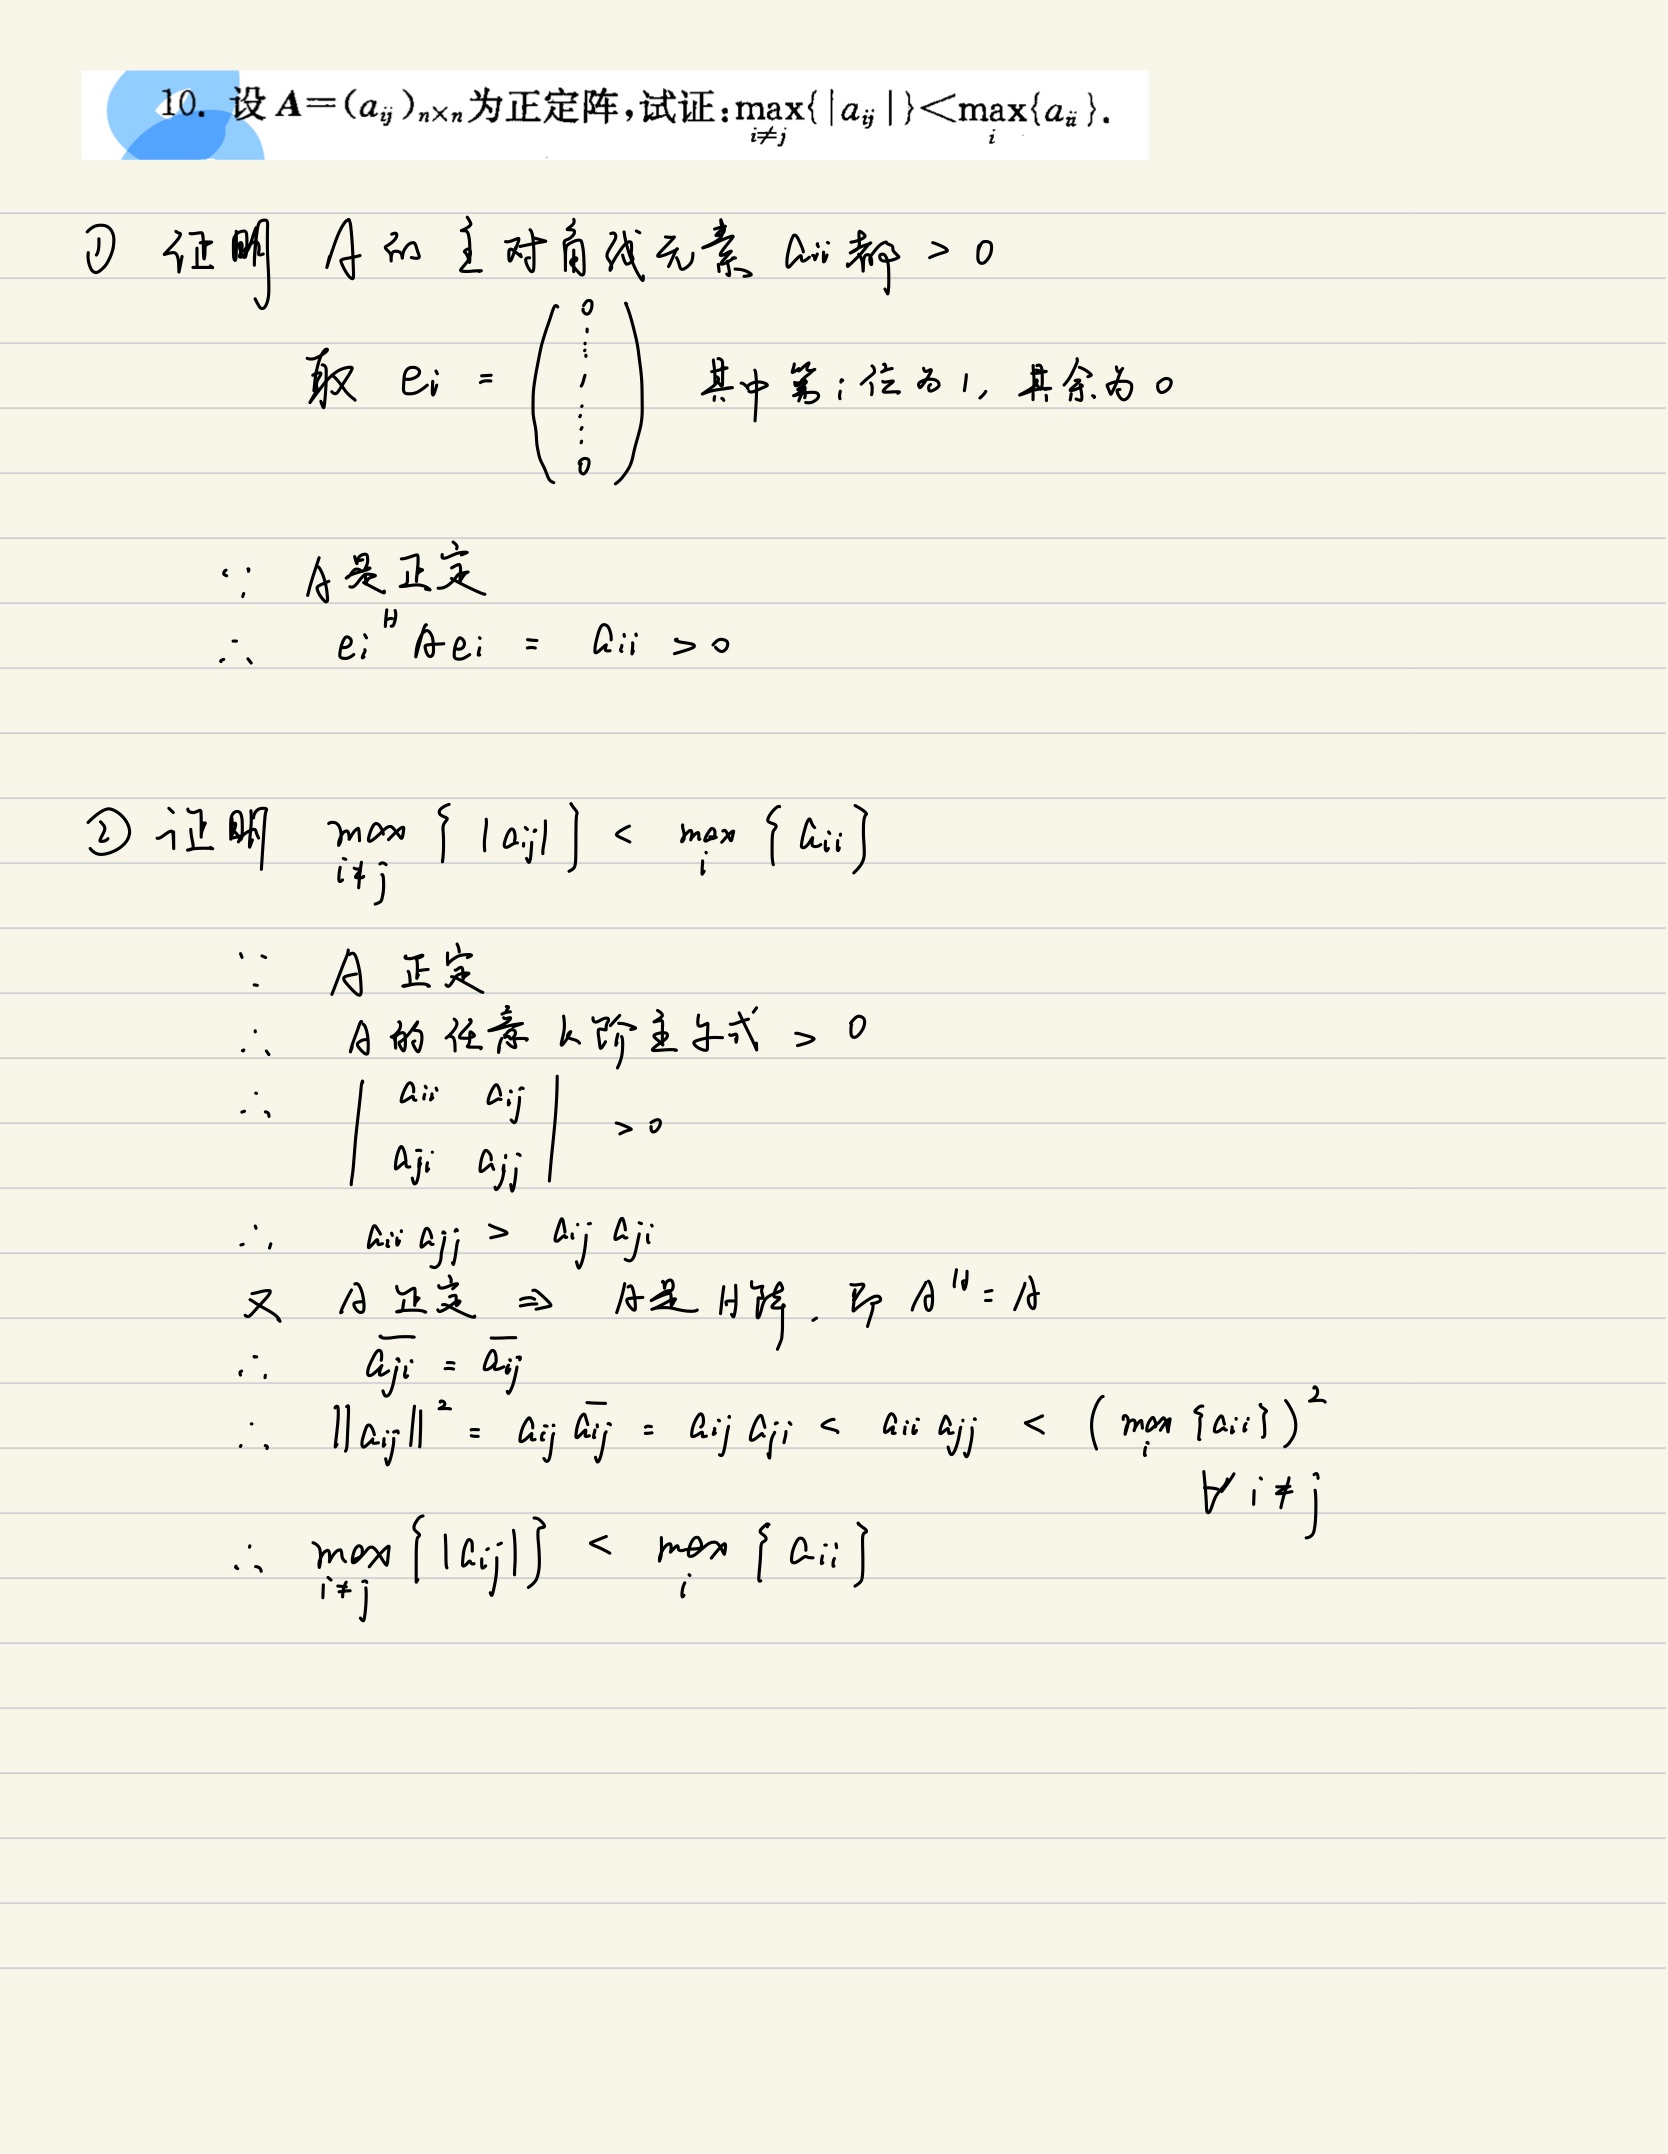 10. 设 A=(aᵢⱼ)ₙ×ₙ为正定阵,试证:max{|aᵢⱼ|}<max{aᵢᵢ}.
i≠j i
① 证明 A 的主对角线元素 aii 都 > 0
取 ei = ( 0 ⋮ 1 ⋮ 0 ) 其中第 i 位为 1, 其余为 0
∵ A是正定
∴ eiᴴ A ei = aii > 0
② 证明 max { |aij| } < max { aii }
i≠j i
∵ A 正定
∴ A 的任意 k 阶主子式 > 0
∴ | aii aij | > 0
| aji ajj |
∴ aii ajj > aij aji
又 A 正定 ⇒ A是 H阵. 即 Aᴴ = A
∴ a̅j̅i̅ = a̅i̅j̅
∴ ||aij||² = aij a̅i̅j̅ = aij aji < aii ajj < ( max {aii} )²
i
∀ i ≠ j
∴ max { |aij| } < max { aii }
i≠j i